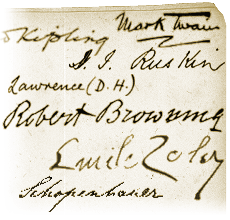 Kipling Mark Twain
J. Ruskin
Lawrence (D. H.)
Robert Browning
Emile Zola
Schopenhauer